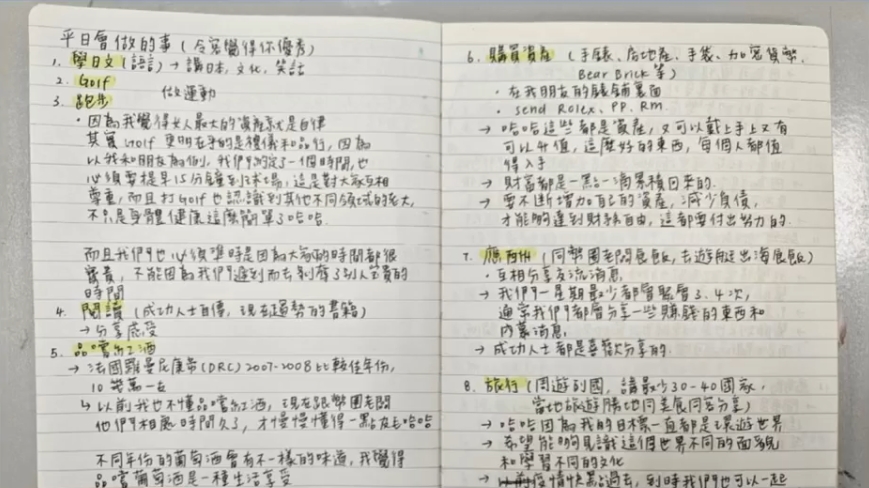 平日會做的事 (令客覺得你優秀)
1. 學日文 (語言) → 講日本, 文化, 笑話
2. Golf
做運動
3. 跑步
・因為我覺得女人最大的資產就是自律
其實 Golf 更明在乎的是禮儀和品行, 因為
以我和朋友為例, 我們約定了一個時間, 也
必須要提早15分鐘到球場, 這是對大家互相
尊重, 而且打Golf 也認識到其他不同領域的老大,
不只是身體健康這麼簡單了哈哈.
而且我們也必須準時是因為大家的時間都很
寶貴, 不能因為我們遲到而去剝奪了別人寶貴的
時間
4. 閱讀 (成功人士自傳, 現在趨勢的書籍)
→ 分享感受
5. 品嚐紅酒
→ 法國羅曼尼康帝 (DRC) 2007-2008 比較佳年份,
10幾萬一支
↳ 以前我也不懂品嚐紅酒, 現在跟幣圈老闆
他們相處時間久了, 才慢慢懂得一點皮毛哈哈
不同年份的葡萄酒會有不一樣的味道, 我覺得
品嚐葡萄酒是一種生活享受
6. 購買資產 (手錶、房地產、手袋、加密貨幣,
Bear Brick 等)
・在我朋友的錶舖裏面
・send Rolex、PP、RM.
→ 哈哈這些都是資產, 又可以戴上手上又有
可以升值, 這麼好的東西, 每個人都值
得入手
→ 財富都是一點一滴累積回來的.
→ 要不斷增加自己的資產, 減少負債,
才能夠達到財務自由, 這都要付出努力的.
7. 應酬 (同幣圈老闆食飯, 去遊艇出海食飯)
・互相分享交流消息,
→ 我們一星期最少都會聚會3.4次,
通常我們都會分享一些賺錢的東西和
內幕消息,
→ 成功人士都是喜歡分享的.
8. 旅行 (周遊列國, 講最少30-40國家,
當地旅遊勝地同美食同客分享)
→ 哈哈因為我的目標一直都是環遊世界
→ 希望能夠見識這個世界不同的面貌
和學習不同的文化
→ 疫情快點過去, 到時我們也可以一起